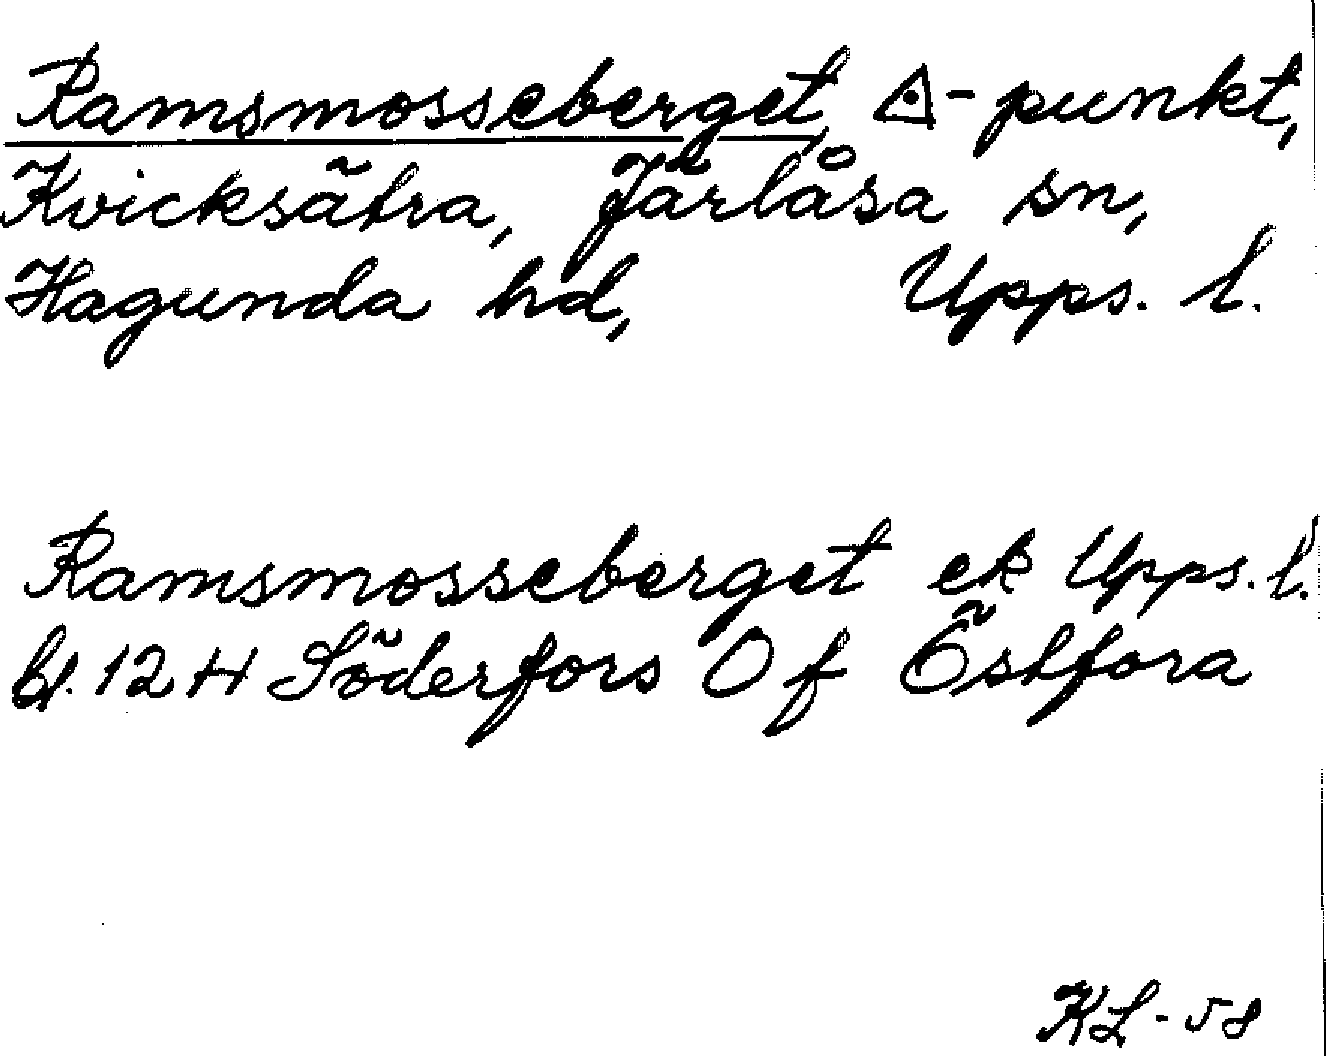 Ramsmosseberget, △-punkt,
Kvicksätra, Järlåsa sn,
Hagunda hd, Upps. l.
Ramsmosseberget ek Upps. l.
bl. 12 H Söderfors 0 f Östfora
KL-58